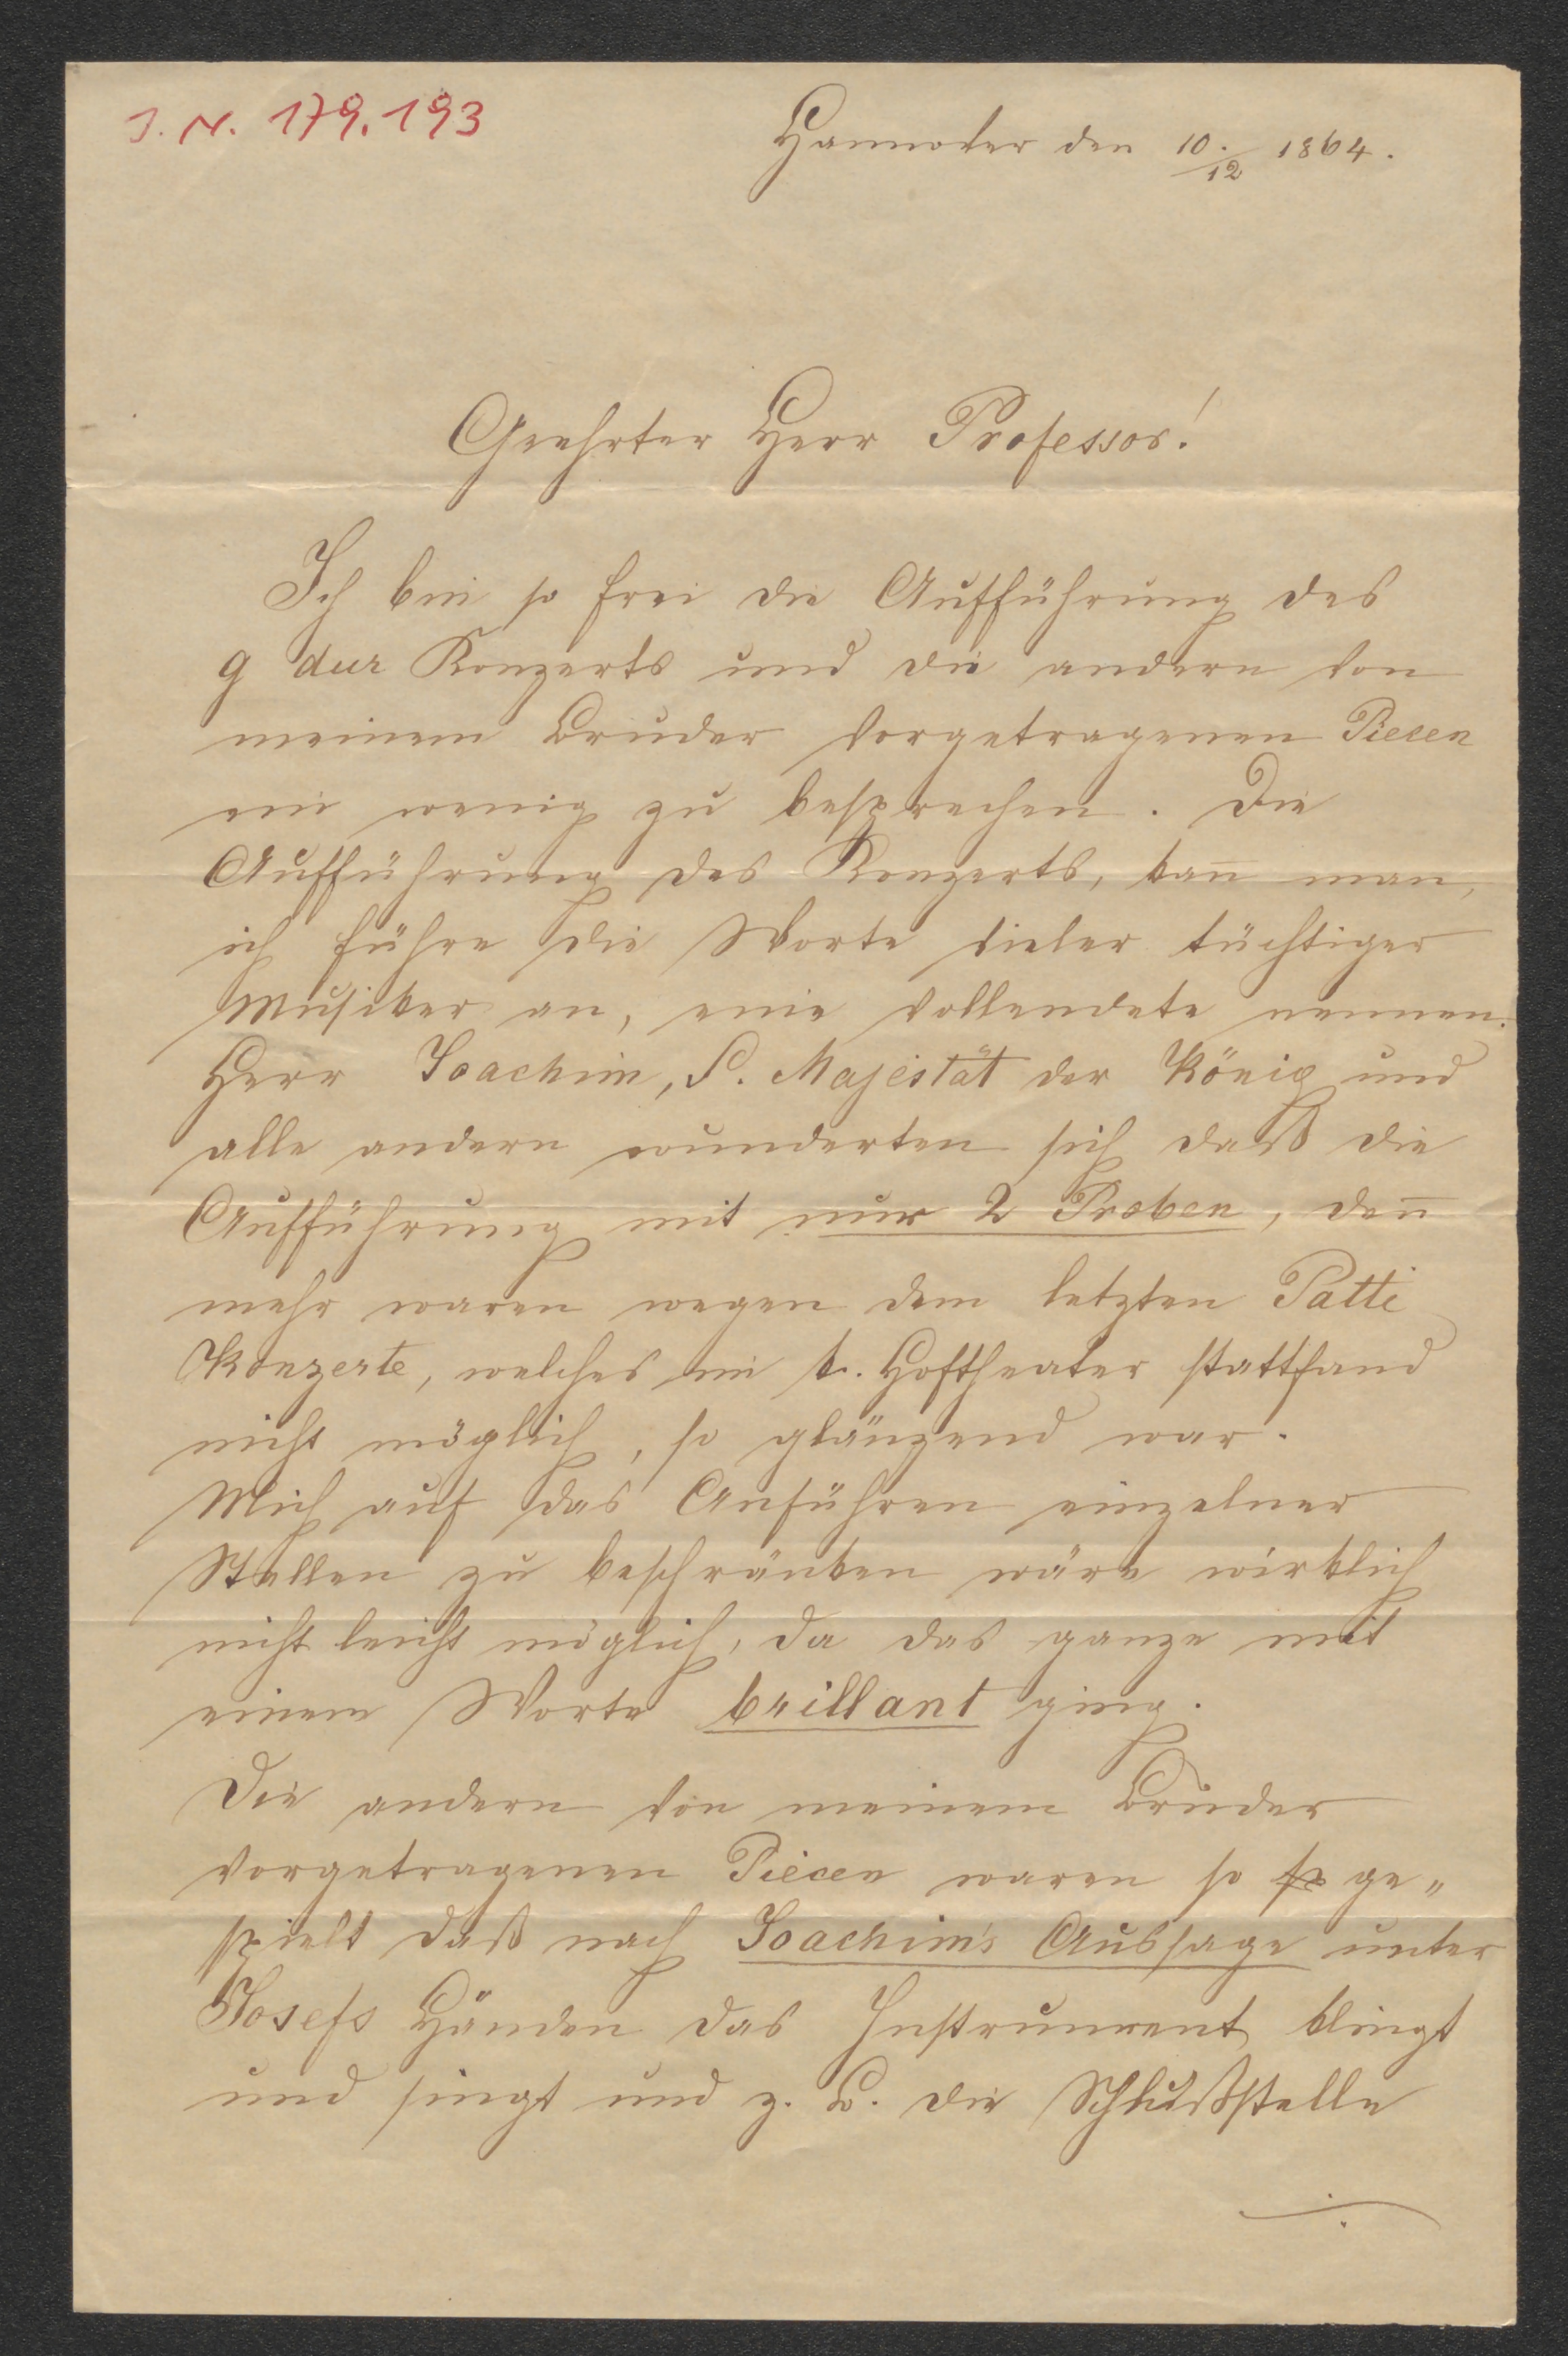 J. N. 179.193
Hannover den 10./12 1864.
Geehrter Herr Professor!
Ich bin so frei die Aufführung des
g dur Konzerts und die andern von
meinem Bruder vorgetragenen Piecen
ein wenig zu besprechen. Die
Aufführung des Konzerts, kan̄ man,
ich führe die Worte vieler tüchtiger
Musiker an, eine vollendete nennen.
Herr Joachim, S. Majestät der König und
alle andern wunderten sich daß die
Aufführung mit nur 2 Proben, den̄
mehr waren wegen dem letzten Patti
Konzerte, welches im k. Hoftheater stattfand
nicht möglich, so glänzend war.
Mich auf das Anführen einzelner
Stellen zu beschränken wäre wirklich
nicht leicht möglich, da das ganze mit
einem Worte brillant ging.
Die andern von meinem Bruder
vorgetragenen Piècen waren so ge„
spielt daß nach Joachim's Aussage unter
Josefs Händen das Instrument klingt
und singt und z. B. die Schlußstelle